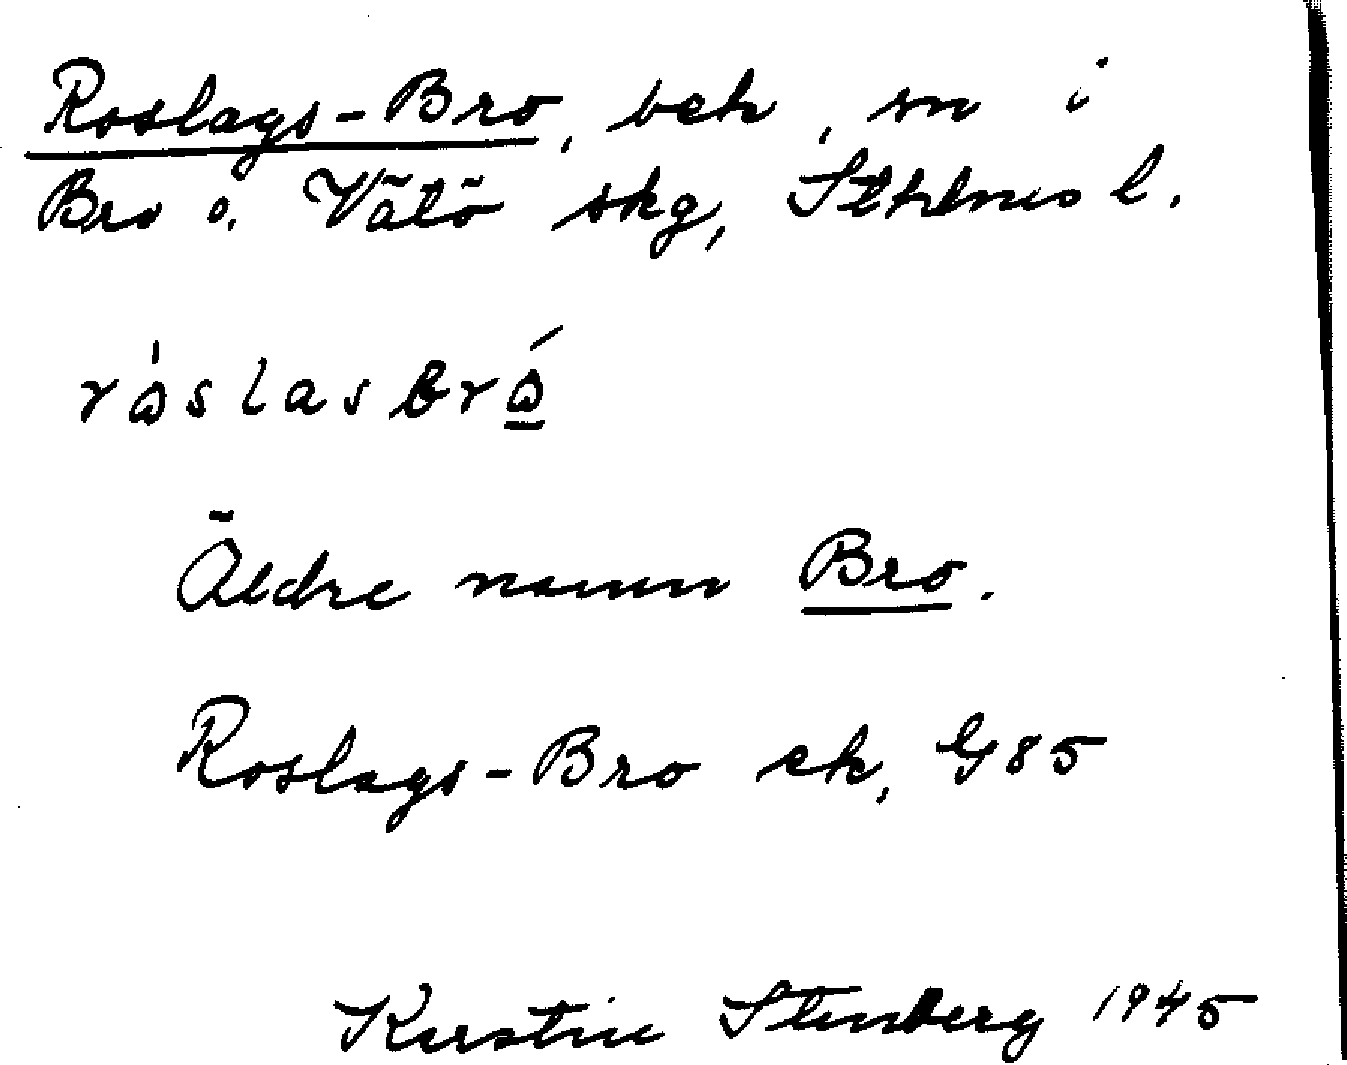 Roslags-Bro, bek, sn i
Bro o. Vätö skg, Sthlms l.
råslasbrå
Äldre namn Bro.
Roslags-Bro ek, G85
Kerstin Stenberg 1945